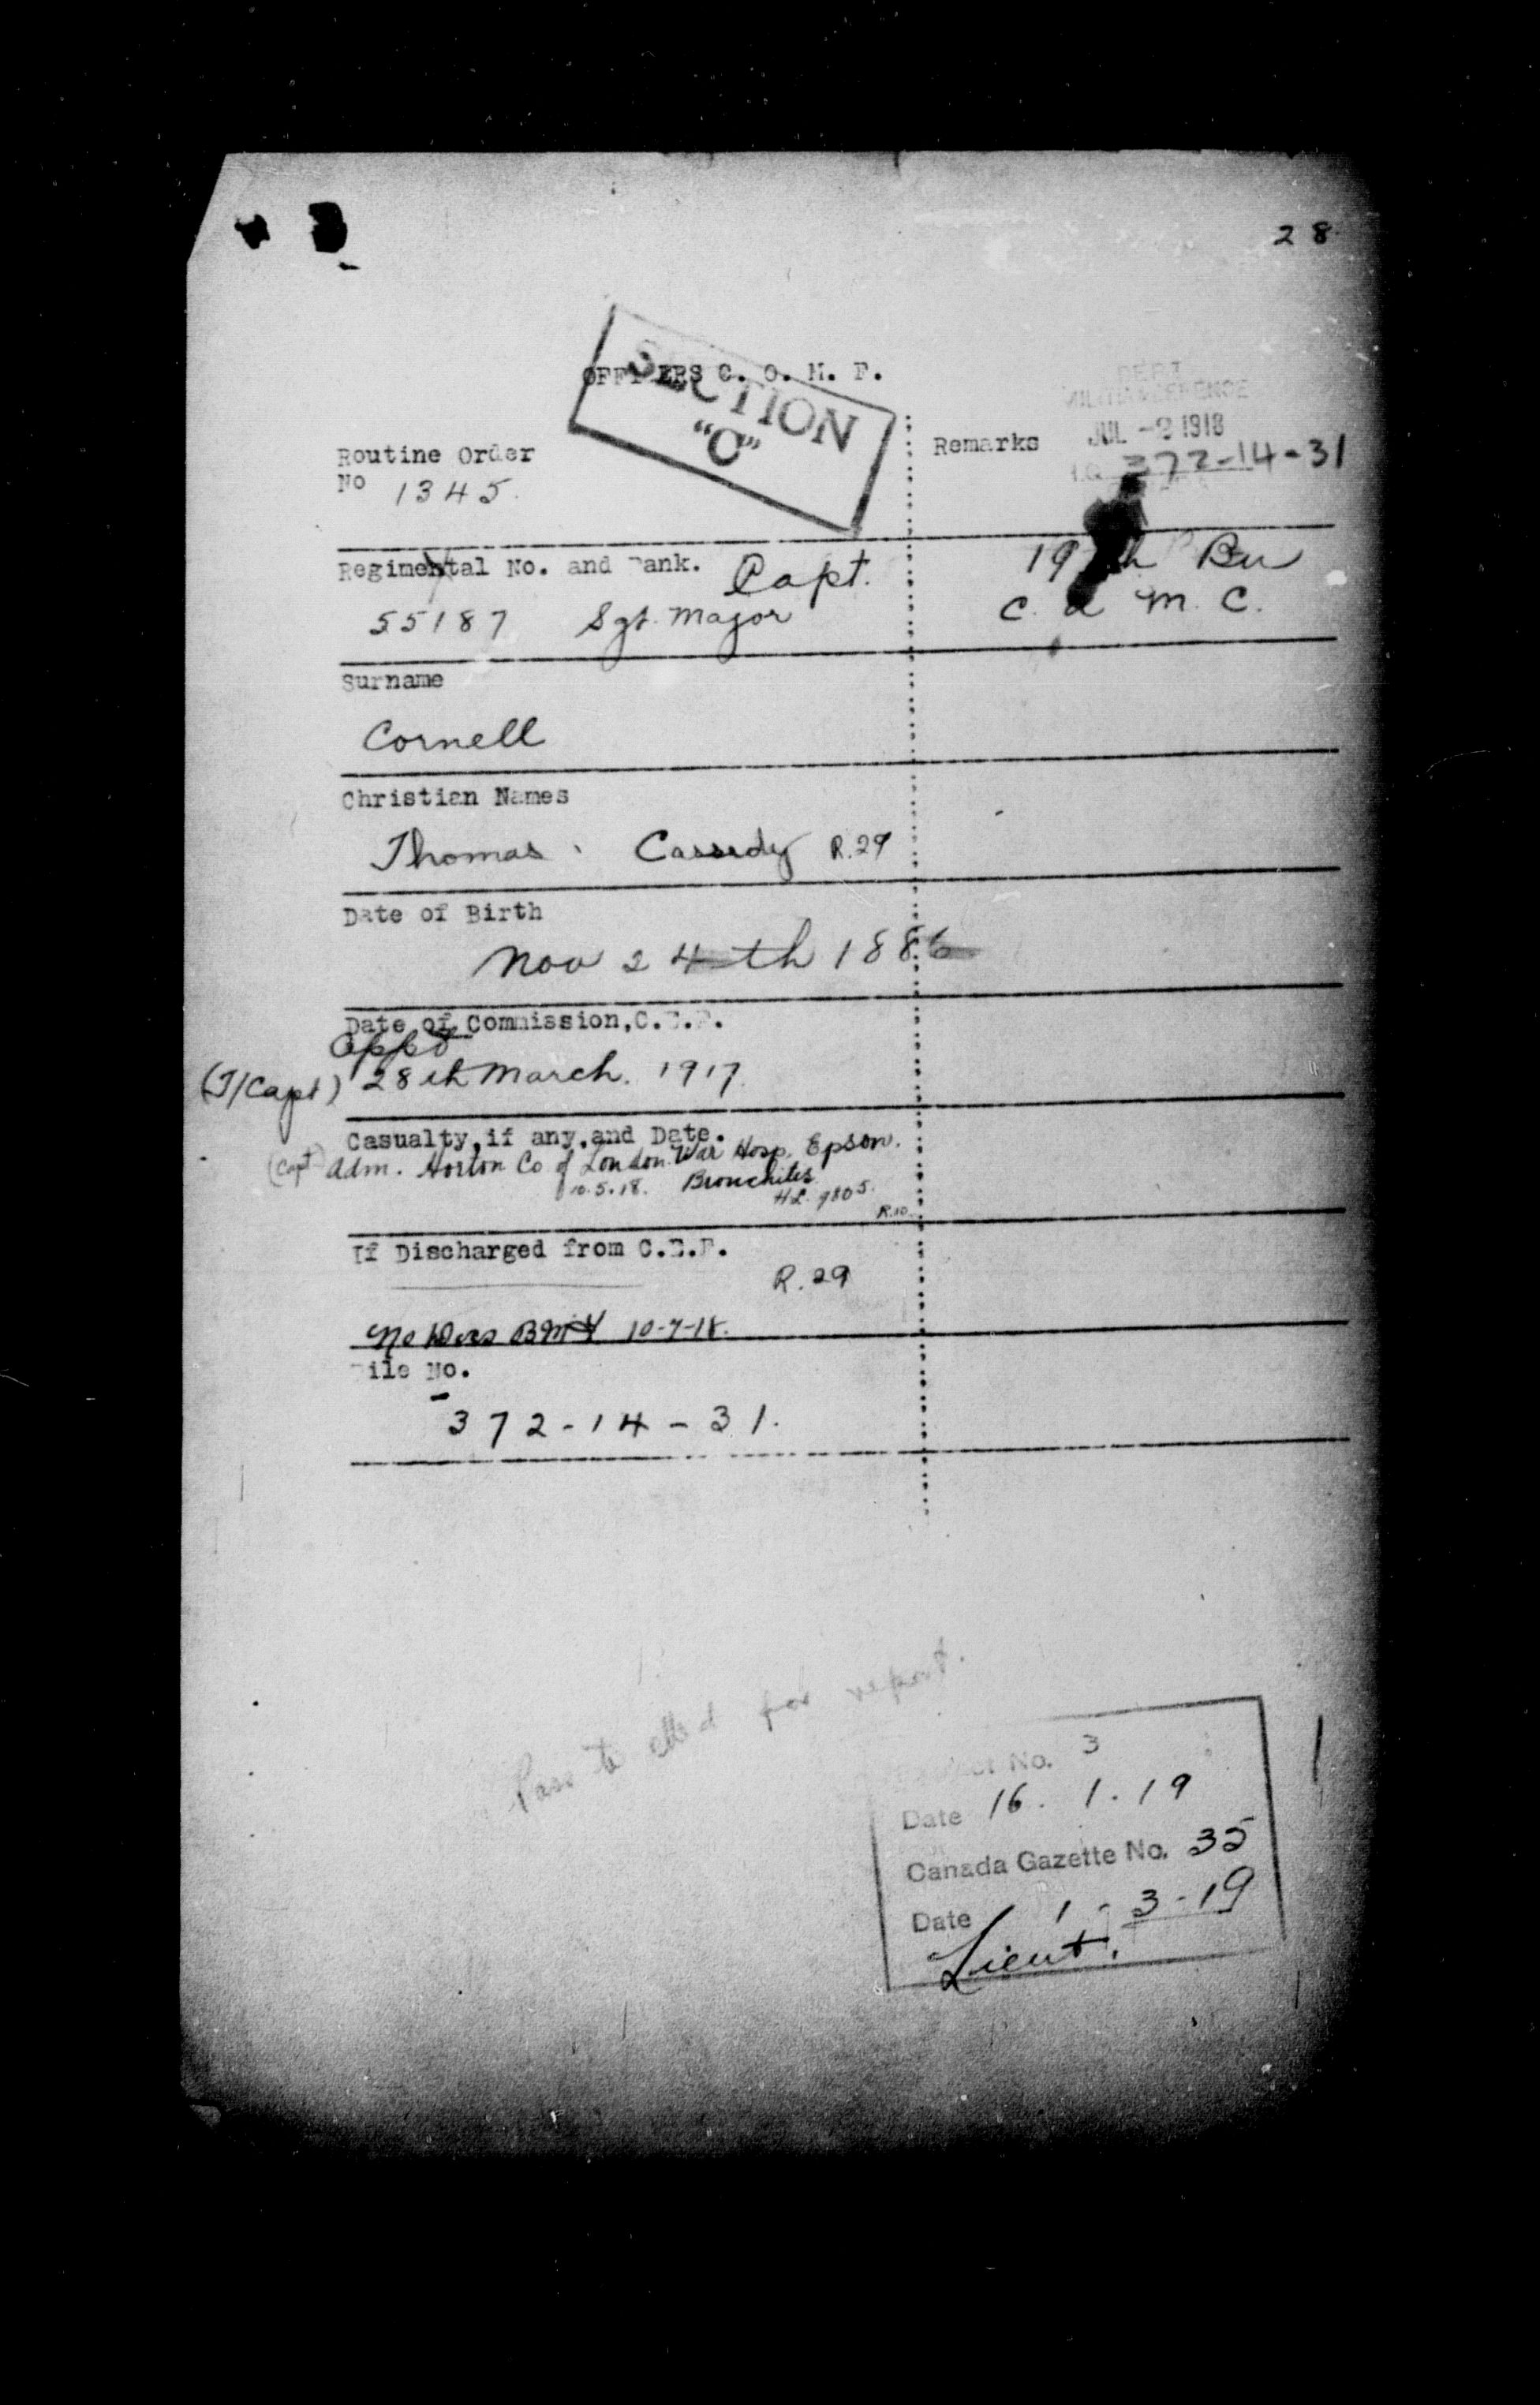 28
OFFICERS C. O. M. F.
SECTION
"C"
DEPT.
MILITIA & DEFENCE
JUL -2 1918
H.Q. 372-14-31
Routine Order
No 1345.
Remarks
Regimental No. and Rank. Capt.
55187 Sgt. Major
19th Bn
C. A. M. C.
Surname
Cornell
Christian Names
Thomas Cassidy R.29
Date of Birth
Nov 24th 1886
Date of Commission, C.E.F.
Appt
(T/Capt) 28th March. 1917.
Casualty, if any, and Date.
(Capt) Adm. Horton Co of London War Hosp. Epsom.
10.5.18. Bronchitis
H.L. 9805.
R.10.
If Discharged from C.E.F.
R. 29
10-7-18.
File No.
372-14-31.
Pass to for report.
No. 3
Date 16. 1. 19
Canada Gazette No. 35
Date 1-3-19
Lieut.